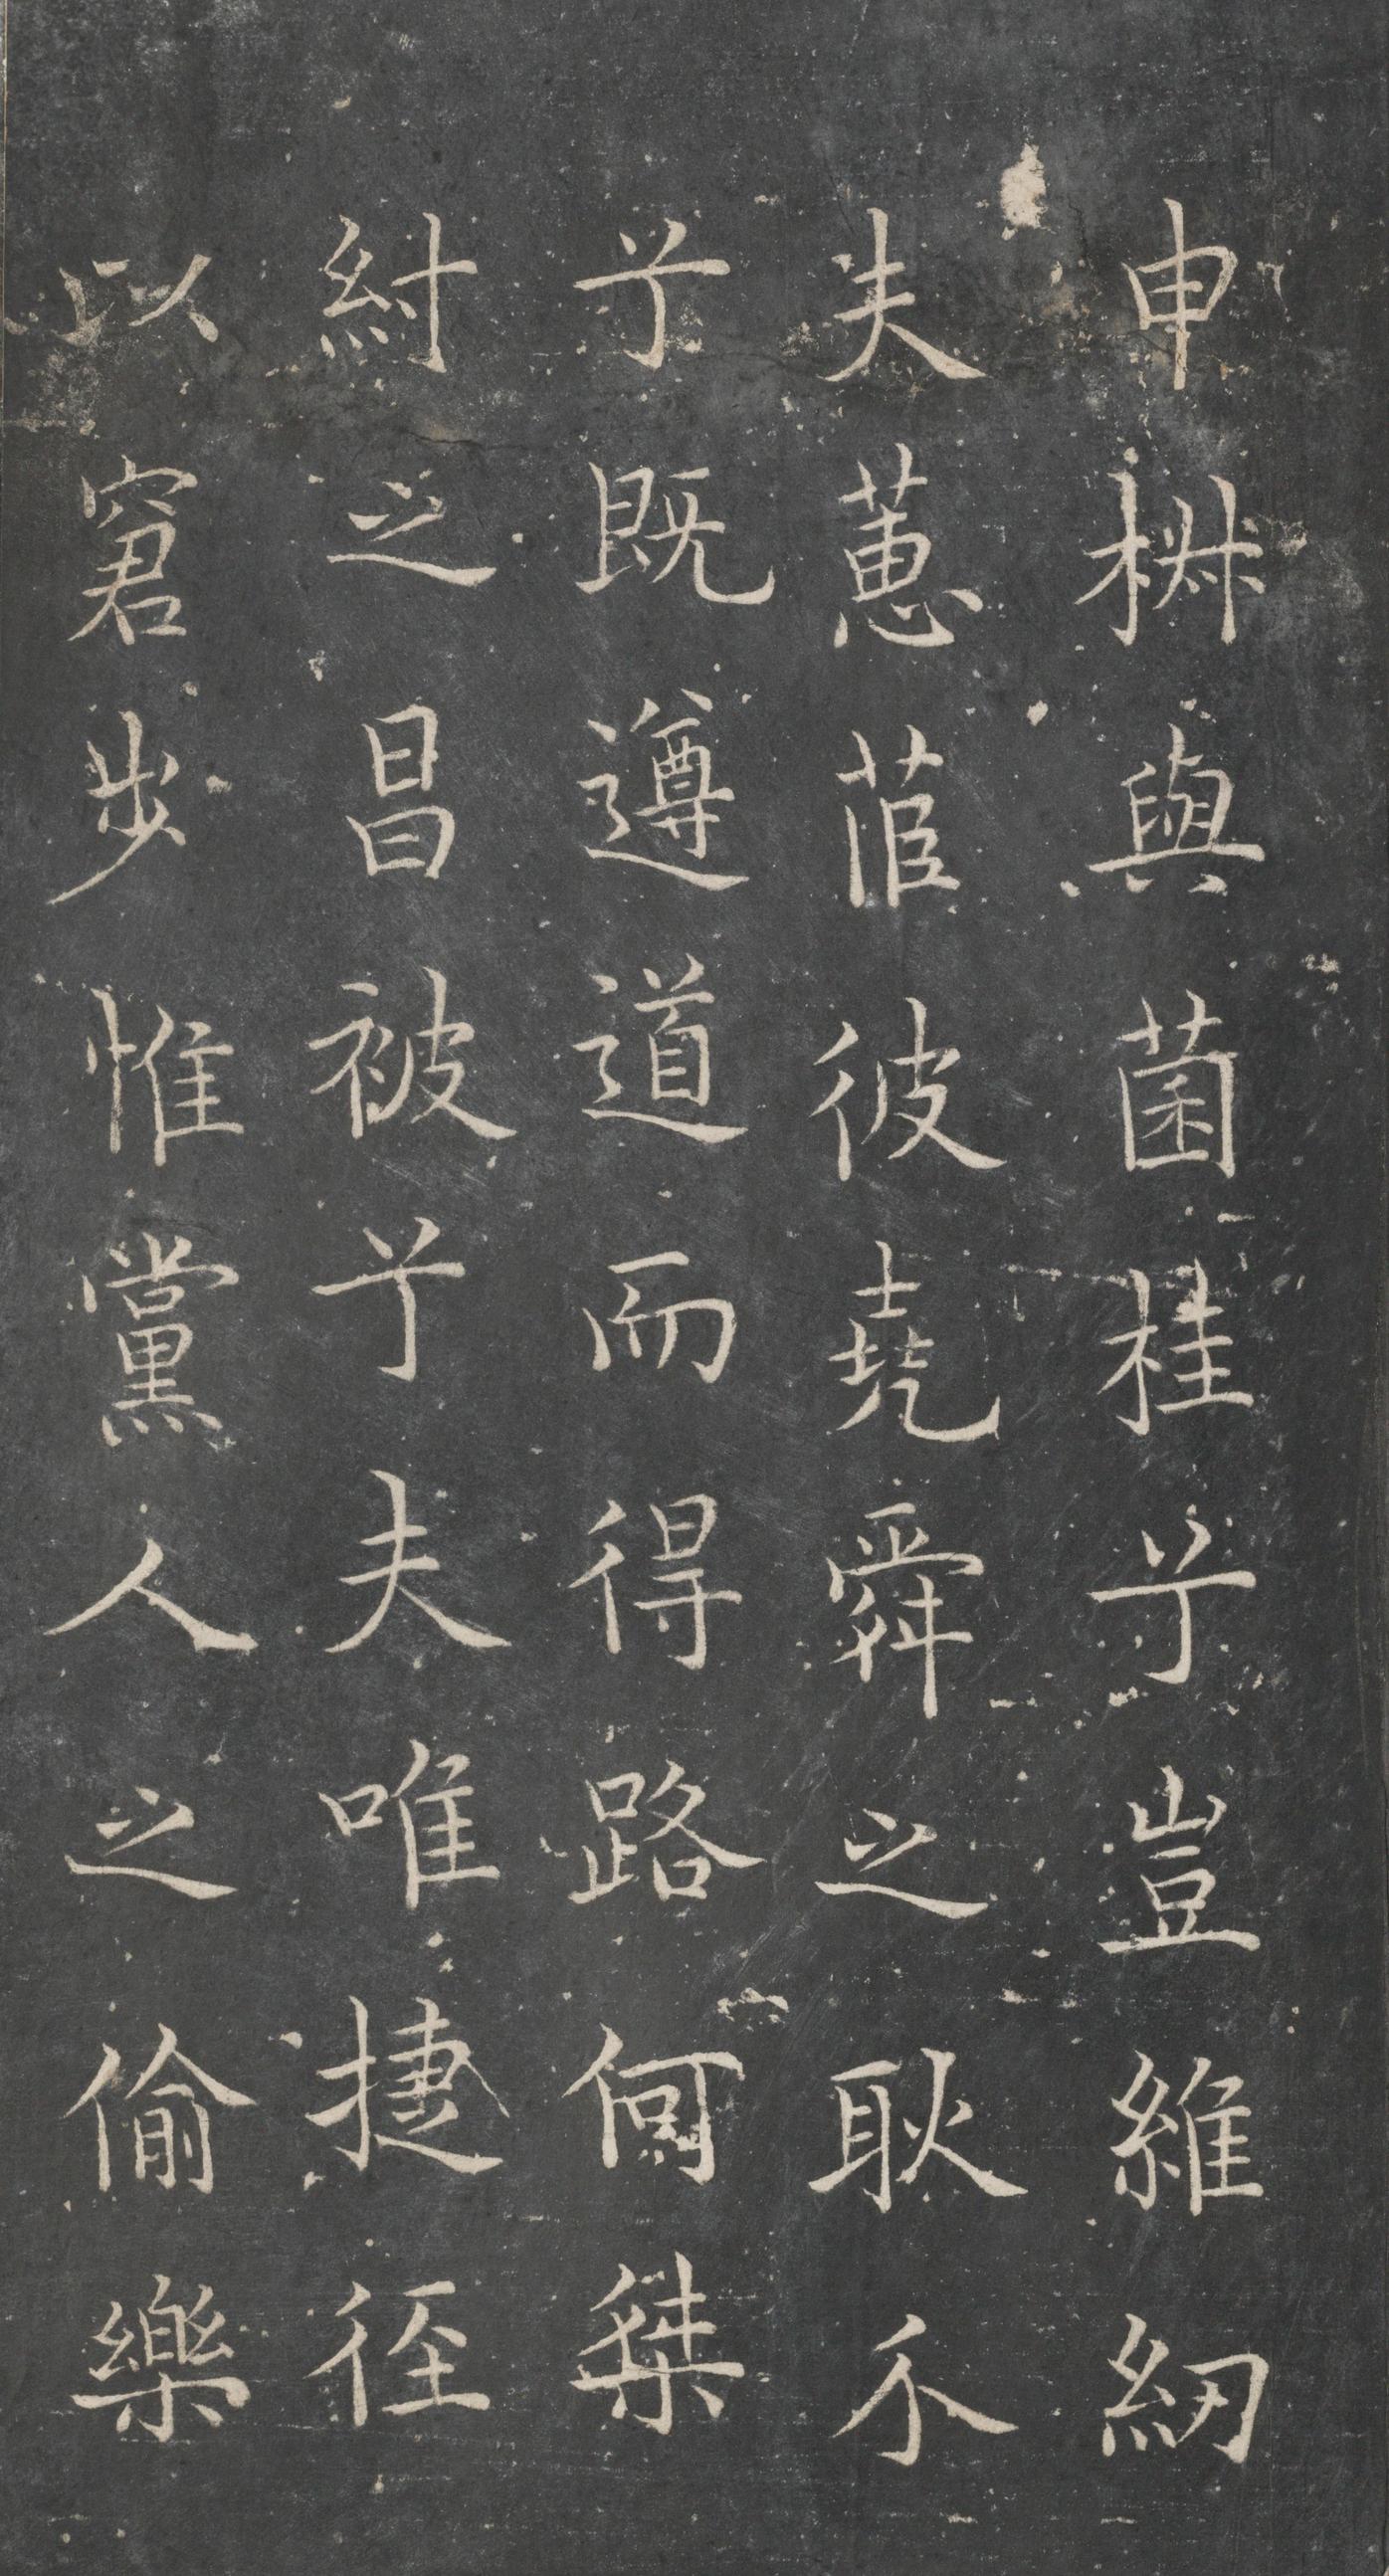 申椒與菌桂兮豈維紉
夫蕙茝彼堯舜之耿介
兮既遵道而得路何桀
紂之昌被兮夫唯捷徑
以窘步惟黨人之偷樂